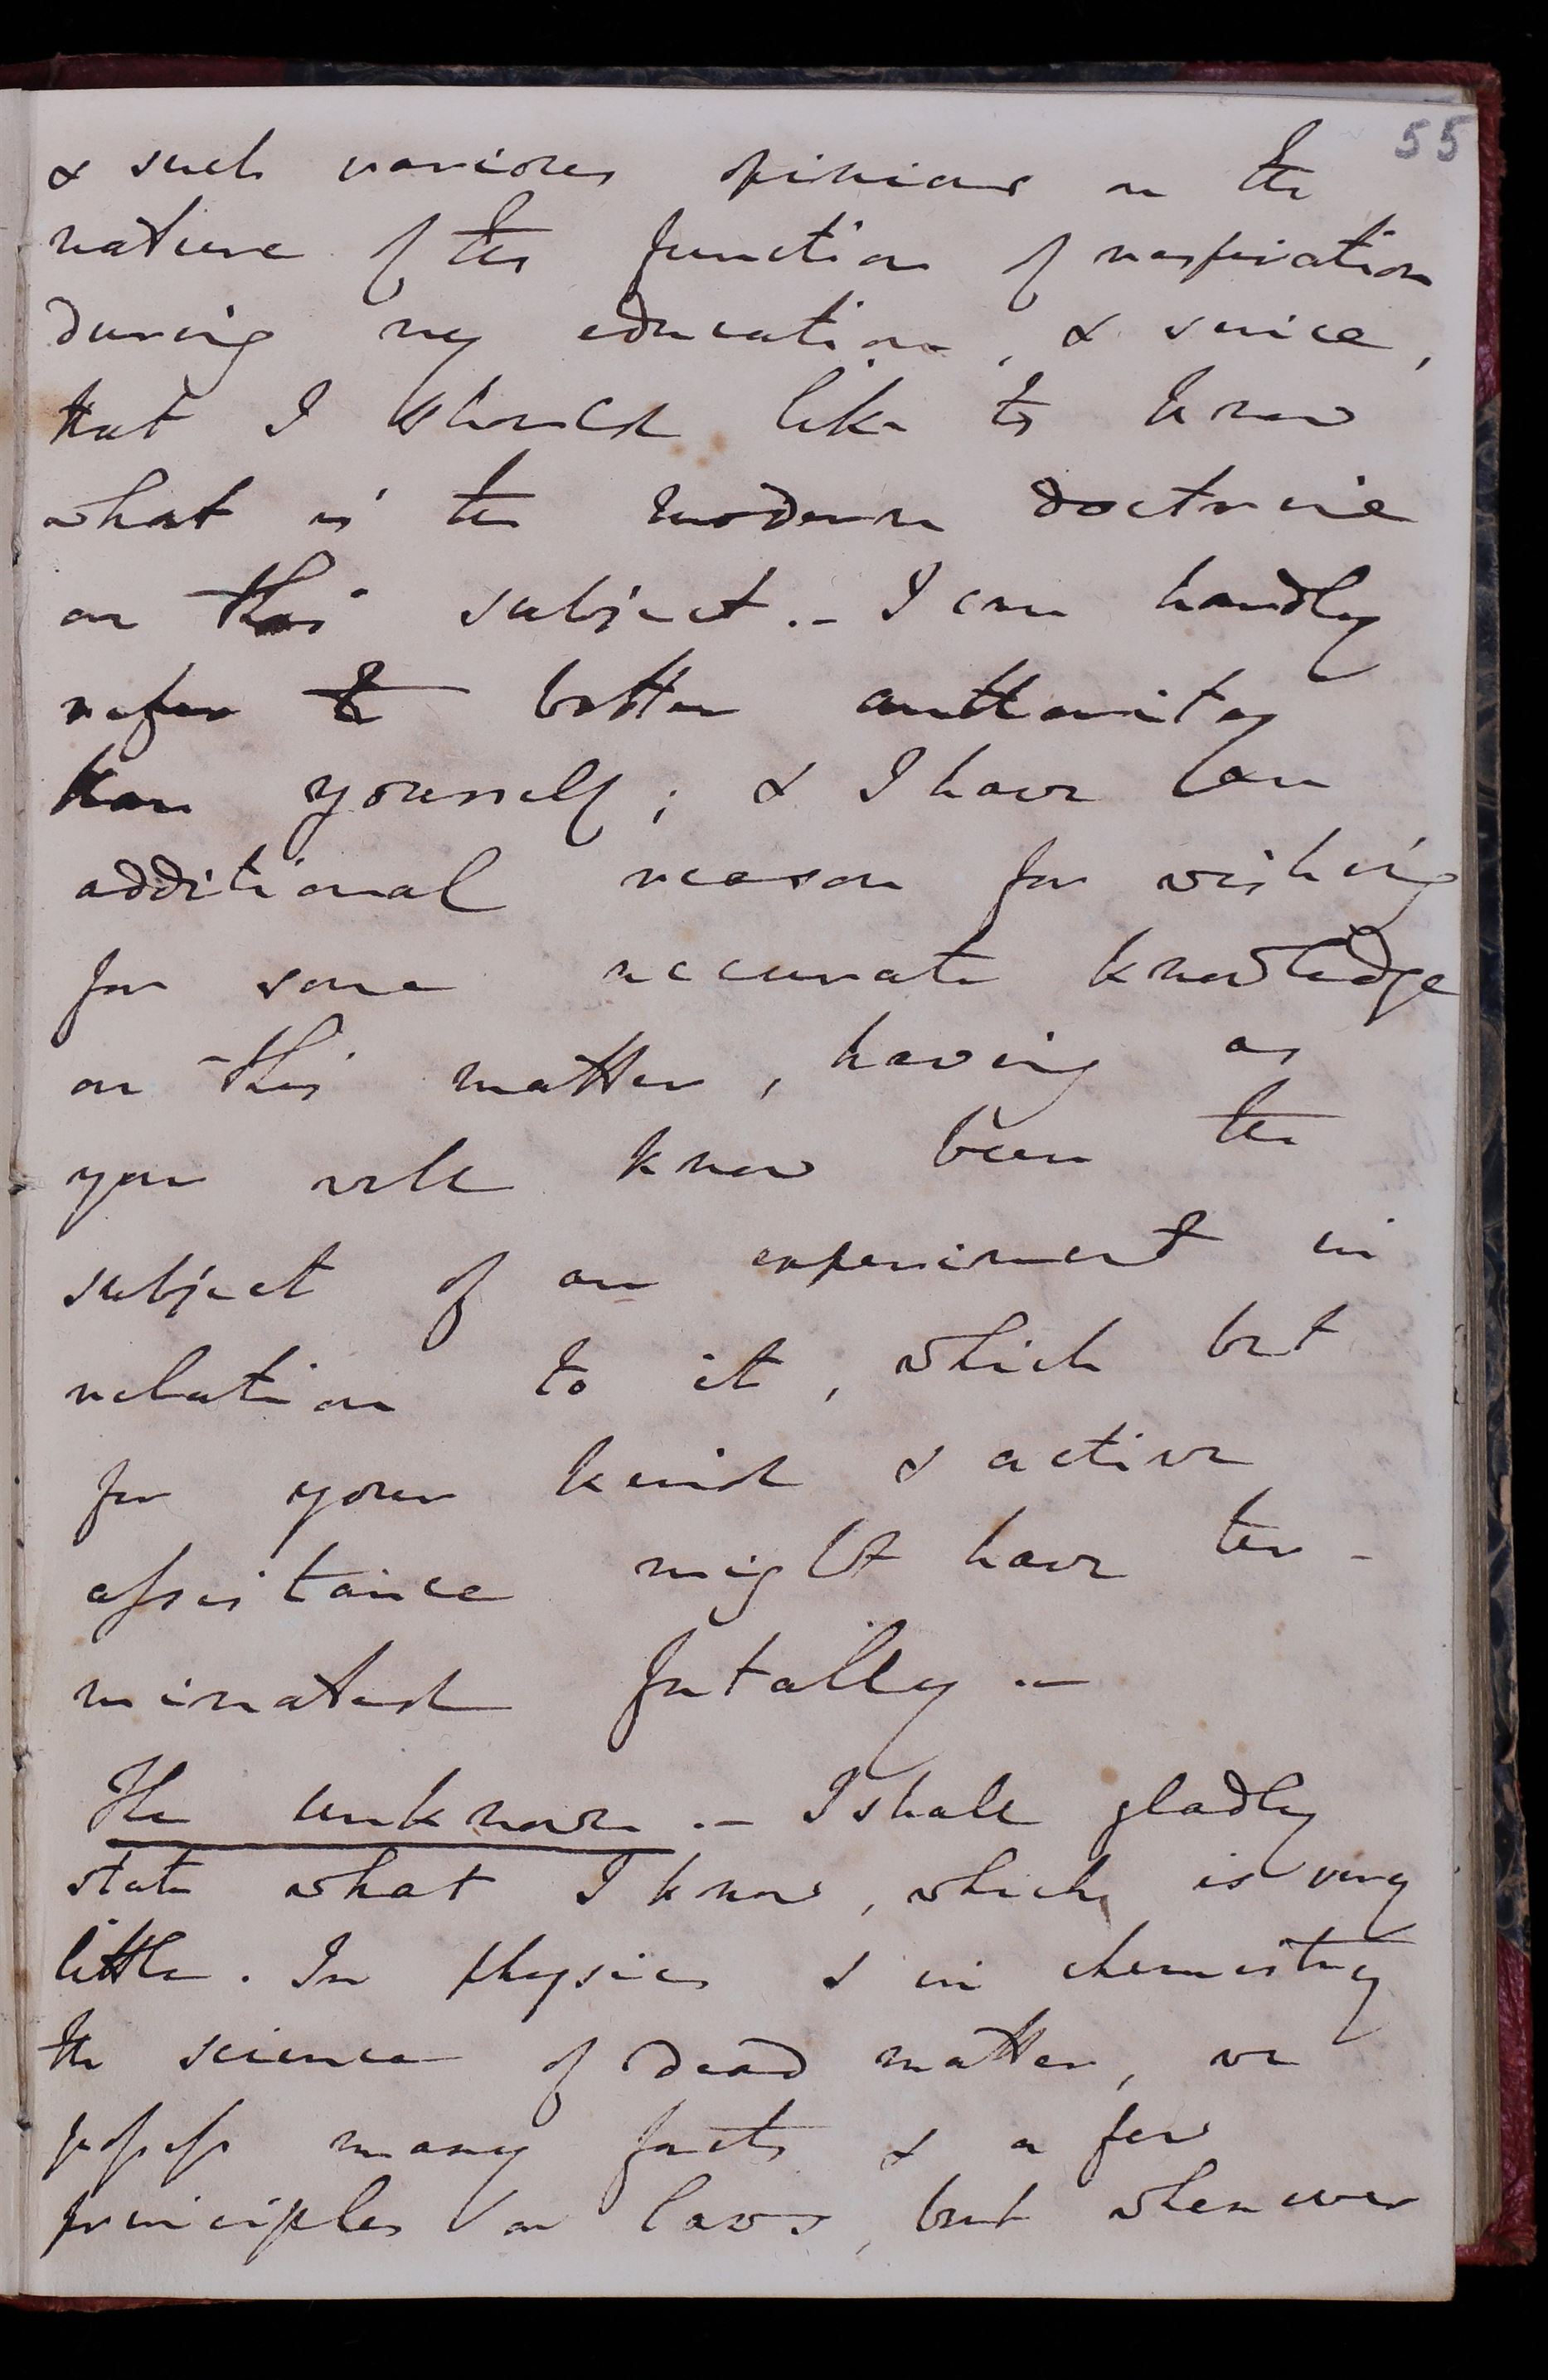 55
& such various opinions on the
nature of the function of respiration
during my education, & since,
that I should like to know
what is the modern doctrine
on this subject.– I can hardly
refer to better authority
than yourself; & I have an
additional reason for wishing
for some accurate knowledge
on this matter, having as
you well know been the
subject of an experiment in
relation to it, which but
for your kind & active
assistance might have ter-
minated fatally.–
The unknown.– I shall gladly
state what I know, which is very
little. In physics & in chemistry
the science of dead matter, we
possess many facts & a few
principles or laws, but whenever